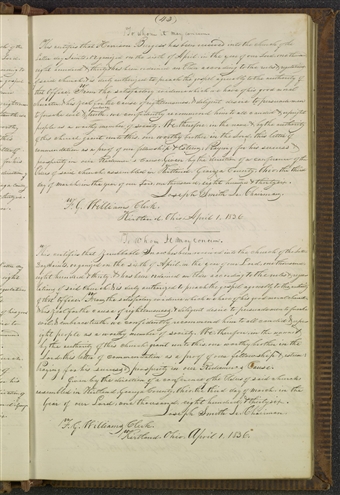 (44)
To whom it may concern.
This certifies that Harrison Burgess has been received into the church of the
Latter day Saints organized on the sixth of April in the year of our Lord one thousand
eight hundred & thirty & has been ordained an Elder according to the rules & regulations
of said church & is duly authorized to preach the gospel agreeably to the authority of
that office. From the satisfactory evidence which we have of his good moral
character & his zeal for the cause of righteousness & diligent desire to persuade men
to forsake evil & truth, we confidently recommend him to all candid & upright
people as a worthy member of society. We therefore in the name & by the authority
of this church grant unto this our worthy brother in the Lord this letter of
commendation as a proof of our fellowship & Esteem: Praying for his success &
prosperity in our Redeemer's Cause Given by the direction of a conference of the Elders
of said church assembled in Kirtland Geauga County Ohio the third
day of march in the year of our Lord one thousand eight hundred & thirty six.
Joseph Smith Jr. Chairman
F. G. Williams Clerk.
Kirtland Ohio April 1. 1836
To Whom It may concern.
This certifies that has been received into the church of the Latter
day Saints organized on the sixth of April in the year of our Lord one thousand
eight hundred & thirty & has been ordained an Elder according to the rules & regu
lations of said church & is duly authorized to preach the gospel agreeably to the authority
of that office. From the satisfactory evidence which we have of his good moral character
& his zeal for the cause of righteousness & diligent desire to persuade men to forsake
evil & embrace truth we confidently recommend him to all candid & up
right people as a worthy member of society. We therefore in the name &
by the authority of this church grant unto this our worthy brother in the
Lord this letter of commendation as a proof of our fellowship & esteem
Praying for his success & prosperity in our Redeemer's Cause.
Given by the direction of a conference of the Elders of said church
assembled in Kirtland Geauga County Ohio the third day of march in the
year of our Lord one thousand eight hundred & thirty six.
Joseph Smith Jr. Chairman
F. G. Williams Clerk
Kirtland, Ohio, April 1, 1836.